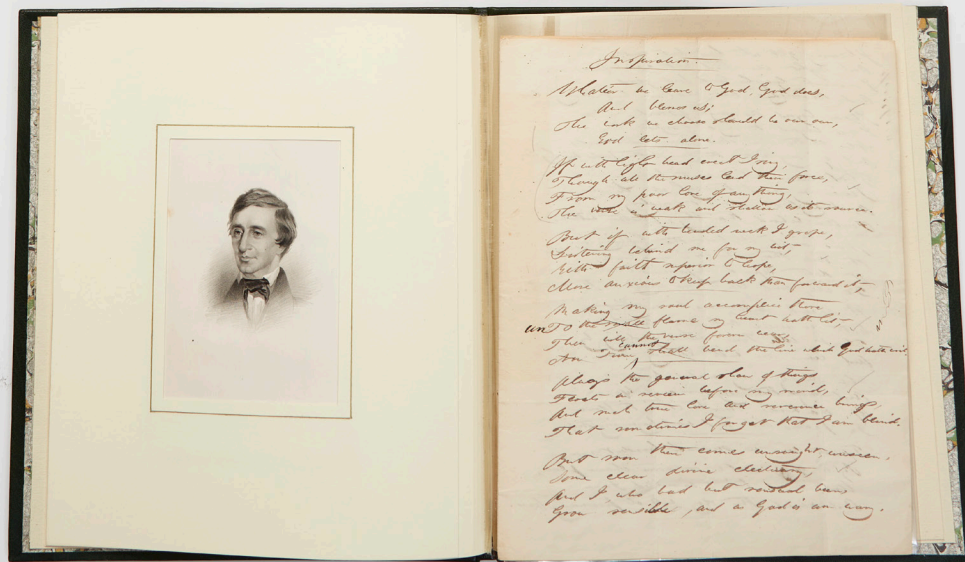 Inspiration.
Whate'er we leave to God, God does,
And blesses us;
The work we choose should be our own,
God lets alone.
If with light head erect I sing,
Though all the muses lend their force,
From my poor love of anything,
The verse is weak and shallow as its source.
But if with bended neck I grope,
Listening behind me for my wit,
With faith superior to hope,
More anxious to keep back than forward it,
Making my soul accomplice there
un
To the small flame my heart hath lit,
Then will the verse forever wear,
cannot
Time shall bend the line which God hath writ.
Always the general show of things
Floats in review before my mind,
And such true love and reverence brings
That sometimes I forget that I am blind.
But soon there comes unsought unseen,
Some clear divine electuary,
And I who had but sensual been,
Grow sensible, and as God is am wary.